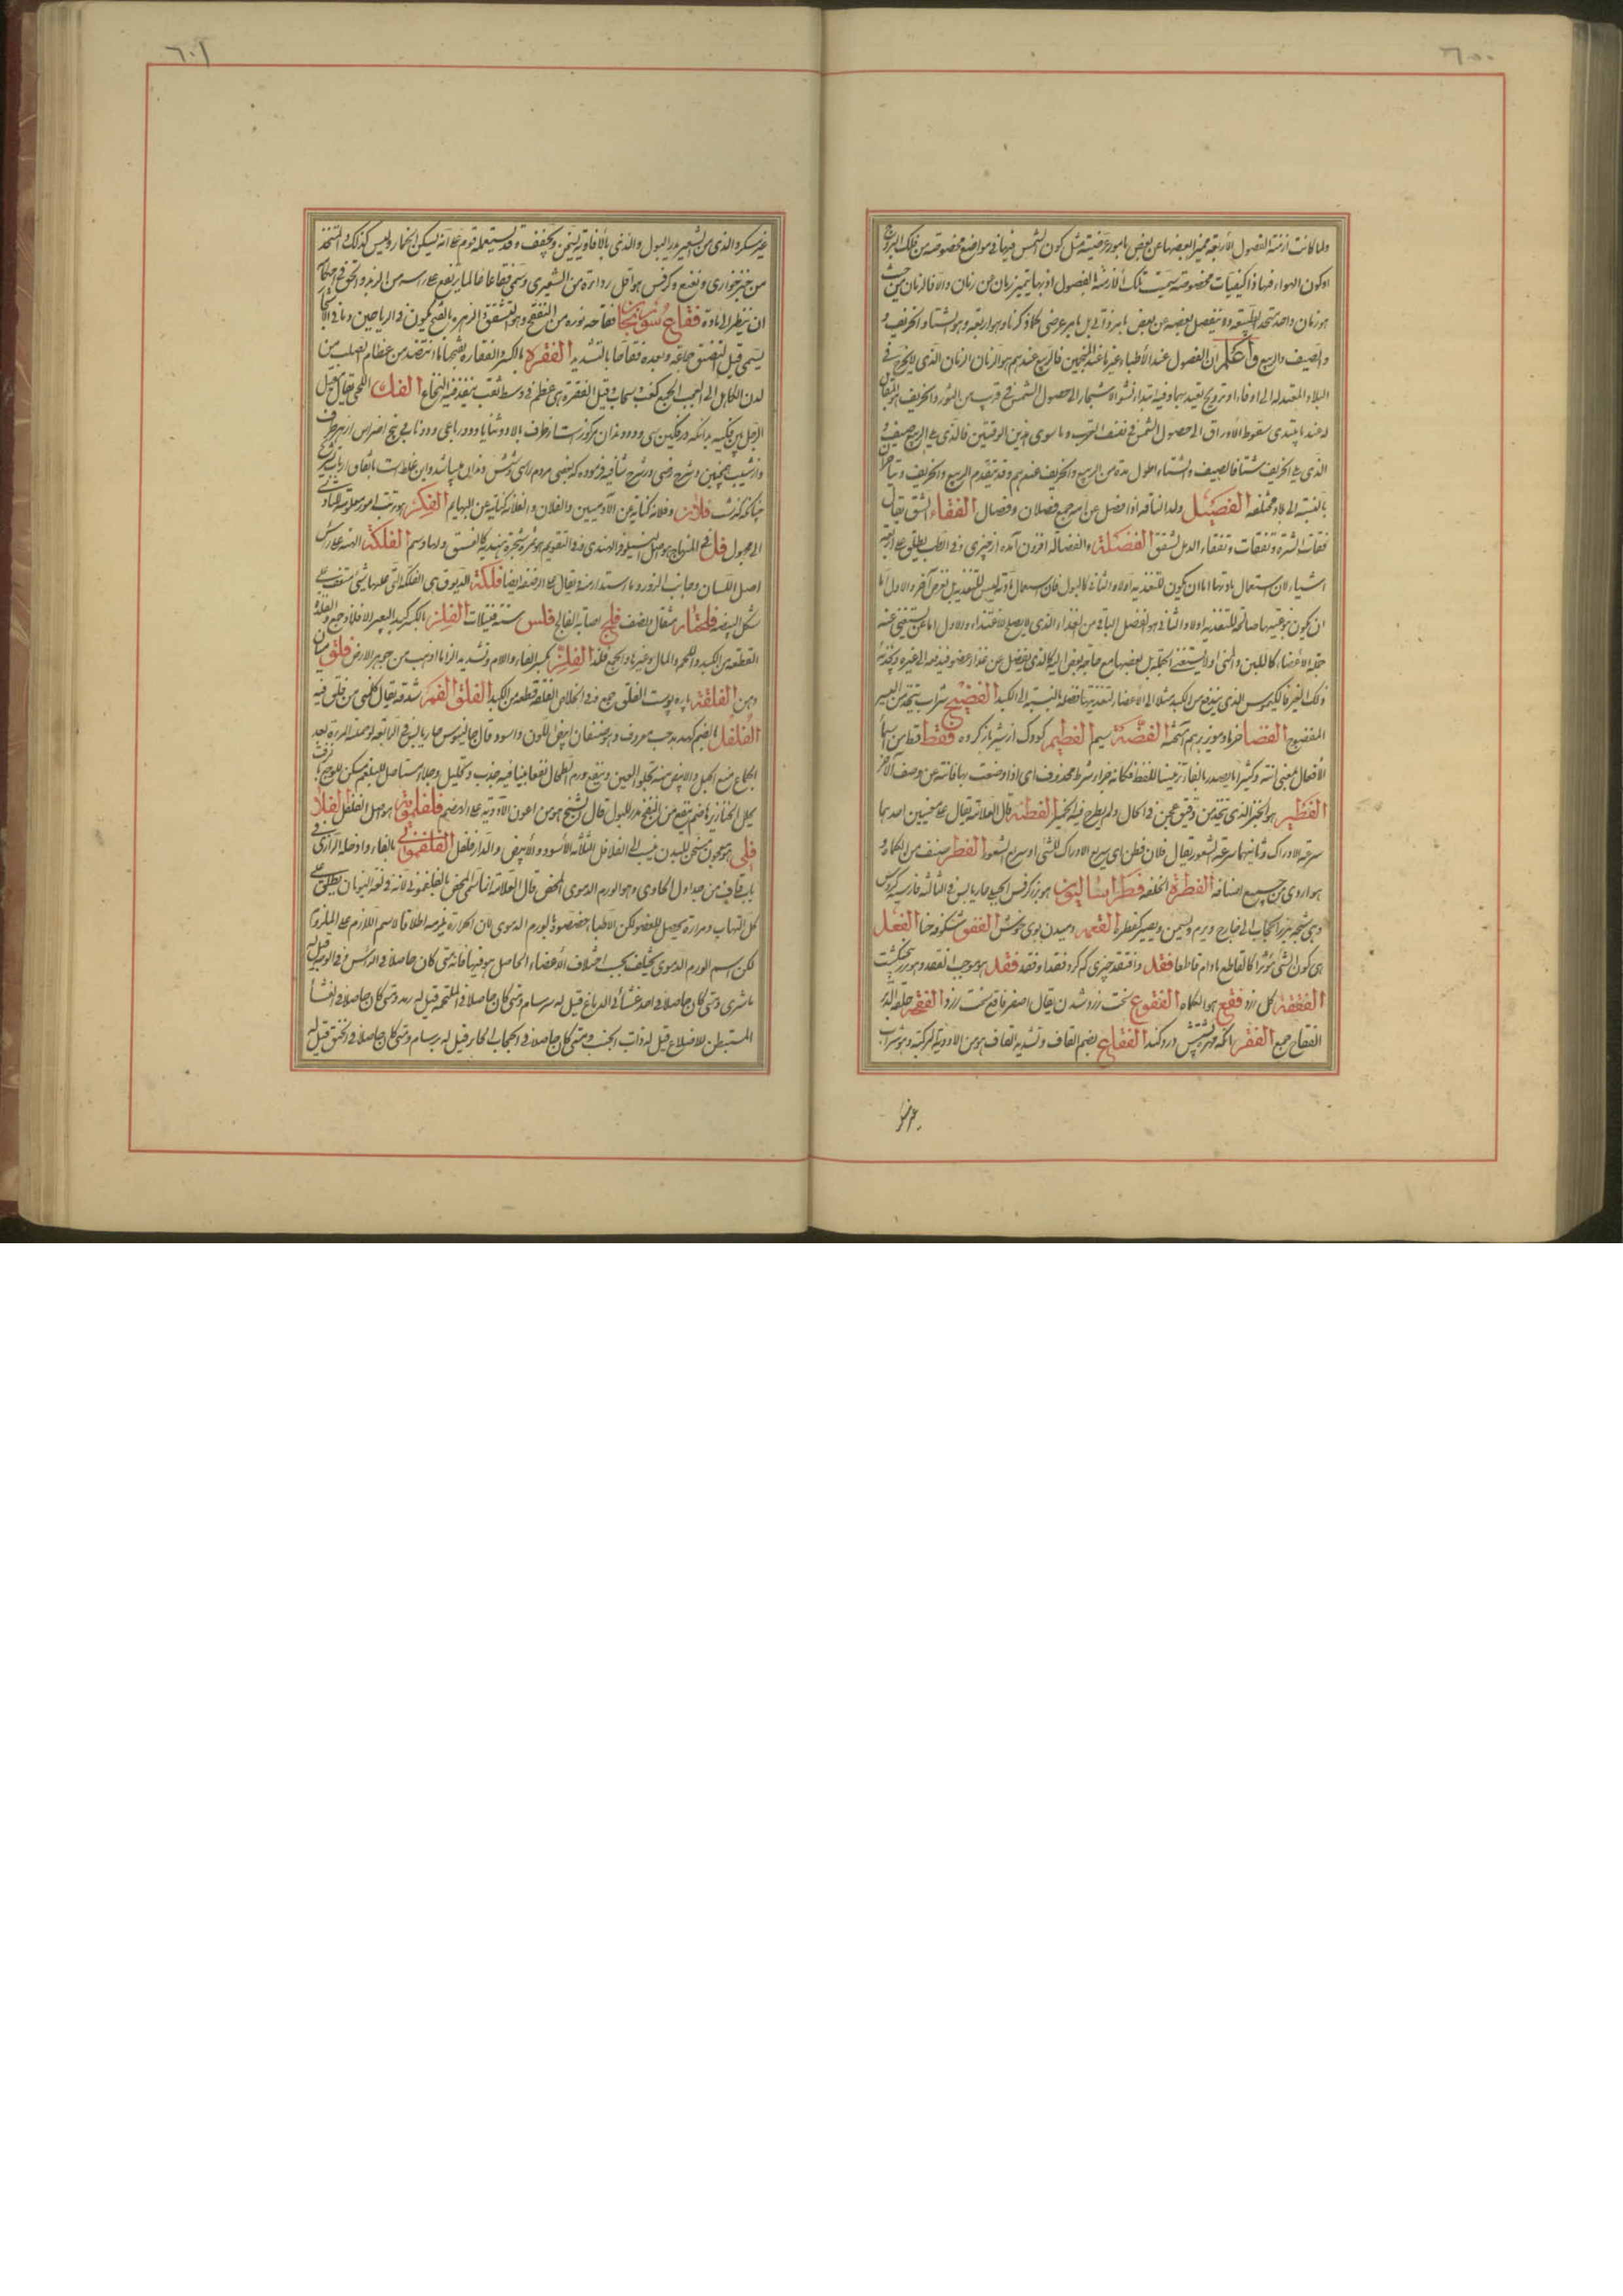 ٦٠٠
ولما كانت ازمنة الفصول الأربعة متميزا بعضها عن بعض بامور عرضية مثل كون الشمس فيها فى مواضع مخصوصة من فلك البروج
او كون الهواء فيها ذا كيفيات مخصوصة سميت تلك الازمنة بالفصول اذ بها يتميز زمان عن زمان والا فالزمان من حيث
هو زمان واحد متحد الطبيعة ولا ينفصل بعضه عن بعض بامر ذاتى بل بامر عرضى كما ذكرنا وهو اربعة وهو الشتاء والخريف و
والصيف والربيع واعلم ان الفصول عند الأطباء غيرها عند المنجمين فالربيع عندهم هو الزمان الذى لا يحوج فى
البلاد المعتدلة الى ادفاء او ترويح يعتد بهما وفيه ابتداء نشو الاشجار الى حصول الشمس فى قرب من الثور والخريف هو المقابل
له عند ما يبتدى سقوط الأوراق الى حصول الشمس فى نصف العقرب وما سوى هذين الوقتين فالذى بعد الربيع صيف و
الذى بعد الخريف شتاء فالصيف والشتاء اطول مدة من الربيع والخريف عندهم وقد يتقدم الربيع والخريف ويتأخر
بالنسبة الى بلاد مختلفة الفصيل ولد الناقة اذا فصل عن امه جمع فصلان وفصال الفقاء الشق يقال
الفضلة والفضالة افزون آمده از چيزى وفى الطب يطلق على اربعة
اشياء لان استعمال
ان يكون نوعيتها صالحة للتغذية اولا والثانى هو الفضل الباقى من الغذاء الذى لا يصلح للاغتذاء والاول اما ان يستغنى عنه
جملة الاعضاء كاللبن والمنى اولا يستغنى
ذلك الغير فالكيموس الذى يندفع من الكبد مثلا الى الأعضاء لتغذيتها فضلة بالنسبة الى الكبد الفضيح شراب يتخذ من البسر
المفضوح الفضا خرما ومويز بهم آميخته الفضة سيم الفطيم كودك از شير باز كرده فقط قط من اسماء
الأفعال بمعنى انته وكثيرا ما يصدر بالفاء تزيينا للفظ فكانه جزاء شرط محذوف
الفطير هو الخبز الذى يتخذ من دقيق عجن فى الحال ولم يطرح فيه الخمير الفطنة قال العلامة يقال على معنيين احدهما
سرعة الادراك وثانيهما سرعة الشعور يقال فلان فطن اى سريع الادراك للشئ او سريع الشعور الفطر صنف من الكماة و
هو اردى من جميع اصنافه الفطرة الخلقة فطراساليون هو بزر كرفس الجبلى حار يابس فى الثالثة فارسية كرفس
الفغمه دميدن بوى خوش الفغو شكوفه حنا الفعل
هى كون الشئ مؤثرا كالقاطع ما دام قاطعا فقد وافتقد چيزى كم كرد فقدا وفقد فقد
الفقعة گل زرد فقع هو الكماة الفقوع سخت زرد شدن يقال اصفر فاقع سخت زرد الفقحة حلقه الدبر
الفقاح جمع الفقر آنكه مهره پشتش درد كند الفقاع بضم الفاء وتشديد القاف هو من الادوية المركبة وهو شراب
غير مسكر
٦٠١
غير مسكر والذى من الشعير يدر البول والذى بالأفاويه يسخن ويجفف وقد يستعمله قوم على انه يسكن الخمار وليس كذلك والمتخذ
من خبز حوارى ونعنع وكرفس هو اقل رداءة من الشعيرى وسمى فقاعا فالما يرتفع على رأسه من الزبد والحق فى
ان ينظر الى مادته فقاع سوريجان فقاحه نوره من التفقح وهو التشقق والزهرة بالضم يكون فى الرياحين وما فى الاشجار
يسمى قبل التفتق جماعة وبعده فقاحا بالتشديد الفقره بالكسر والفقارة بفتحها ما انتضد من عظام الصلب من
لدن الكاهل الى العجب الجمع كعنب وسحاب وقيل الفقرة هى عظم فى وسط ثقب ينفذ فيه النخاع الفك اللحى يقال مقتل
الرجل بين فكيه
واز شيب همچنين وشرح رضى در شرح شافيه فرموده كه بعضى مردم را سى وشش دندان ميباشد واين غلط است باتفاق ارباب تشريح
چنانكه گذشت فلان وفلانة كناية عن الآدميين والفلان والفلانة كناية عن البهايم الفكر هو ترتيب امور معلومة ليتادى
الى مجهول فل فى المنهاج هو اصل النيلوفر الهندى وفى التقويم هو ثمرة شجرة هندية كالفستق ولها دسم الفلكة الهنة على رأس
اصل اللسان وجانب الزور وما استدار منه ويقال على الرضفة ايضا فلكة
شكل البيضة فلنجار مثقال ونصف فلج اصابه الفالج فلس ستة فتيلات الفلذ بالكسر كبد البعير الافلاذ جمع والفلذة
القطعة من الكبد واللحم والمال وغيرها والجمع فلذ الفلز بكسر الفاء واللام وتشديد الزاء ما اذيب من جوهر الارض فلق ميان
دهن الفلقة پاره پوست الفلق جمع وفى الخلاص الفلقة قطعة من الكبد الفلق الفم شدقه يقال كلمنى من فلق فيه
الفلفل بالضم كهدهد حب معروف وهو صنفان ابيض اللون واسود وقال جالينوس حار يابس فى الرابعة
الجماع منع الحبل والابيض منه يجلو العين وينفع ورم الطحال نفعا بينا فيه جذب وتحليل وجلاء مستاصل للبلغم مسكن للوجع
يحلل الخنازير هاضم ينفع من النفخ مدر للبول قال الشيخ هو من اعون الادوية على الهضم فلفلمويه هو اصل الفلفل الفلاف
فلى هو معجون مسخن للبدن ينسب الى الفلافل الثلاثة الاسود والأبيض والدار فلفل الفلغمونى بالفاء وادخله الرازى فى
باب قاف من جداول الحاوى وهو الورم الدموى المحض قال العلامة انما سمى المحض بالفلغمونى لانه فى لغة اليونان يطلق على
كل التهاب وحرارة تحصل للعضو لكن الأطباء خصصوه بالورم الدموى لان الحرارة يلزمه اطلاقا لاسم اللازم على الملزوم
لكن اسم الورم الدموى يختلف بحسب اختلاف الأعضاء الحاصل هو فيها فانه متى كان حاصلا فى الرأس وفى الوجه قيل له
ماشرى ومتى كان حاصلا فى احد غشائى الدماغ قيل له سرسام ومتى كان حاصلا فى الملتحمة قيل له رمد ومتى كان حاصلا فى الغشاء
المستبطن للاضلاع قيل له ذات الجنب ومتى كان حاصلا فى الحجاب الحاجز قيل له برسام ومتى كان حاصلا فى الحلق قيل له